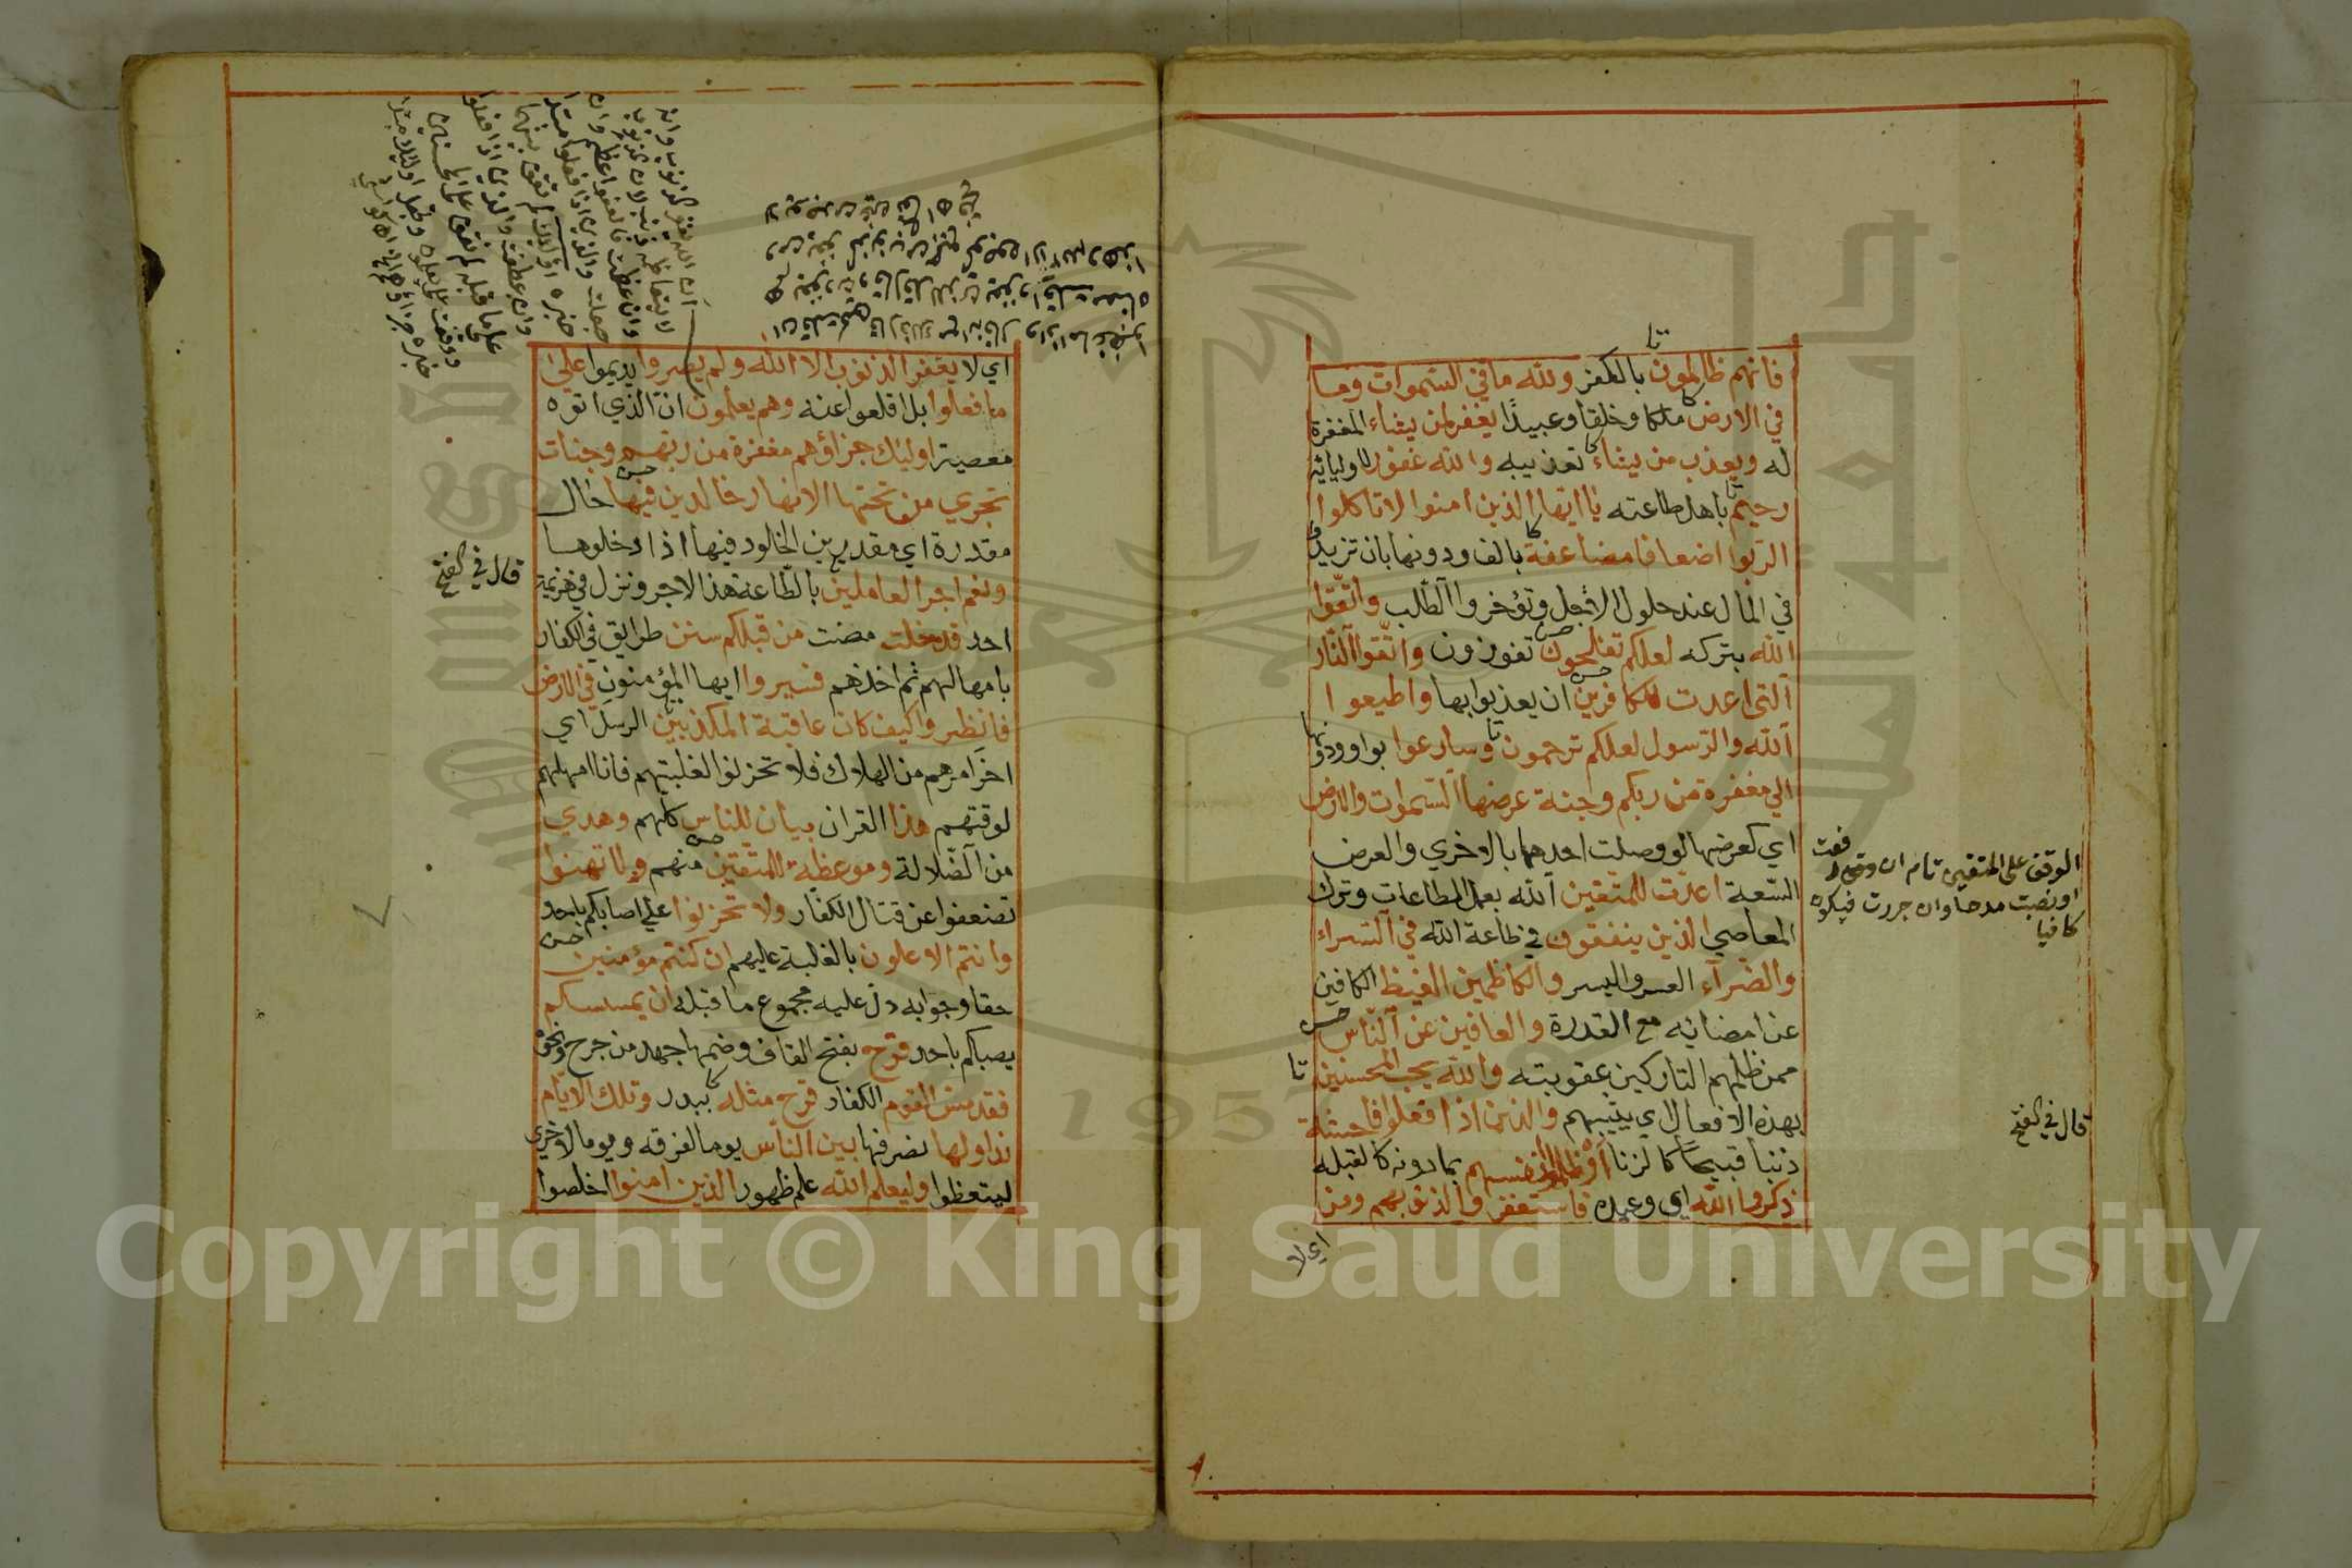 فانهم ظالمون بالكفر ولله ما في السموات وما
في الارض ملكا وخلقا وعبيدا يغفر لمن يشاء المغفرة
له ويعذب من يشاء تعذيبه والله غفور لاوليائه
رحيم باهل طاعته يا ايها الذين امنوا لا تاكلوا
الربوا اضعافا مضاعفة بالف ودونها بان تزيدوا
في المال عند حلول الاجل وتؤخروا الطلب واتقوا
الله بتركه لعلكم تفلحون تفوزون واتقوا النار
التي اعدت للكافرين ان يعذبوا بها واطيعوا
الله والرسول لعلكم ترحمون وسارعوا بواو ودونها
الي مغفرة من ربكم وجنة عرضها السموات والارض
اي كعرضها لو وصلت احدهما بالاخري والعرض
السعة اعدت للمتقين الله بعمل الطاعات وترك
المعاصي الذين ينفقون في طاعة الله في السراء
والضراء العسر واليسر والكاظمين الغيظ الكافين
عن امضائه مع القدرة والعافين عن الناس
ممن ظلمهم التاركين عقوبته والله يحب المحسنين
بهذه الافعال اي يثيبهم والذين اذا فعلوا فاحشة
ذنبا قبيحا كالزنا او ظلموا انفسهم بما دونه كالقبله
ذكروا الله اي وعيده فاستغفروا لذنوبهم ومن
اي لا
الوقف على المتقين تام ان رفعت
او نصبت مدحا وان جررت فيكون
كافيا
قال في الفتح
اي لا يغفر الذنوب الا الله ولم يصروا يديموا على
ما فعلوا بل اقلعوا عنه وهم يعلمون ان الذي اتوه
معصية اوليك جزاؤهم مغفرة من ربهم وجنات
تجري من تحتها الانهار خالدين فيها حال
مقدرة اي مقدرين الخلود فيها اذا دخلوها
ونعم اجر العاملين بالطاعة هذا الاجر ونزل في هزيمة
احد قد خلت مضت من قبلكم سنن طرايق في الكفار
بامهالهم ثم اخذهم فسيروا ايها المؤمنون في الارض
فانظروا كيف كان عاقبة المكذبين الرسل اي
اخر امرهم من الهلاك فلا تحزنوا لغلبتهم فانا امهلهم
لوقتهم هذا القران بيان للناس كلهم وهدي
من الضلالة وموعظة للمتقين منهم ولا تهنوا
تضعفوا عن قتال الكفار ولا تحزنوا علي اصابكم باحد
وانتم الاعلون بالغلبة عليهم ان كنتم مؤمنين
حقا وجوابه دل عليه مجموع ما قبله ان يمسسكم
يصبكم باحد قرح بفتح القاف وضمها جهد من جرح ونحوه
فقد مس القوم الكفار قرح مثله ببدر وتلك الايام
نداولها نصرفها بين الناس يوما لفرقه ويوما لاخري
ليتعظوا وليعلم الله علم ظهور الذين امنوا اخلصوا
قال في الفتح
Copyright © King Saud University
1957